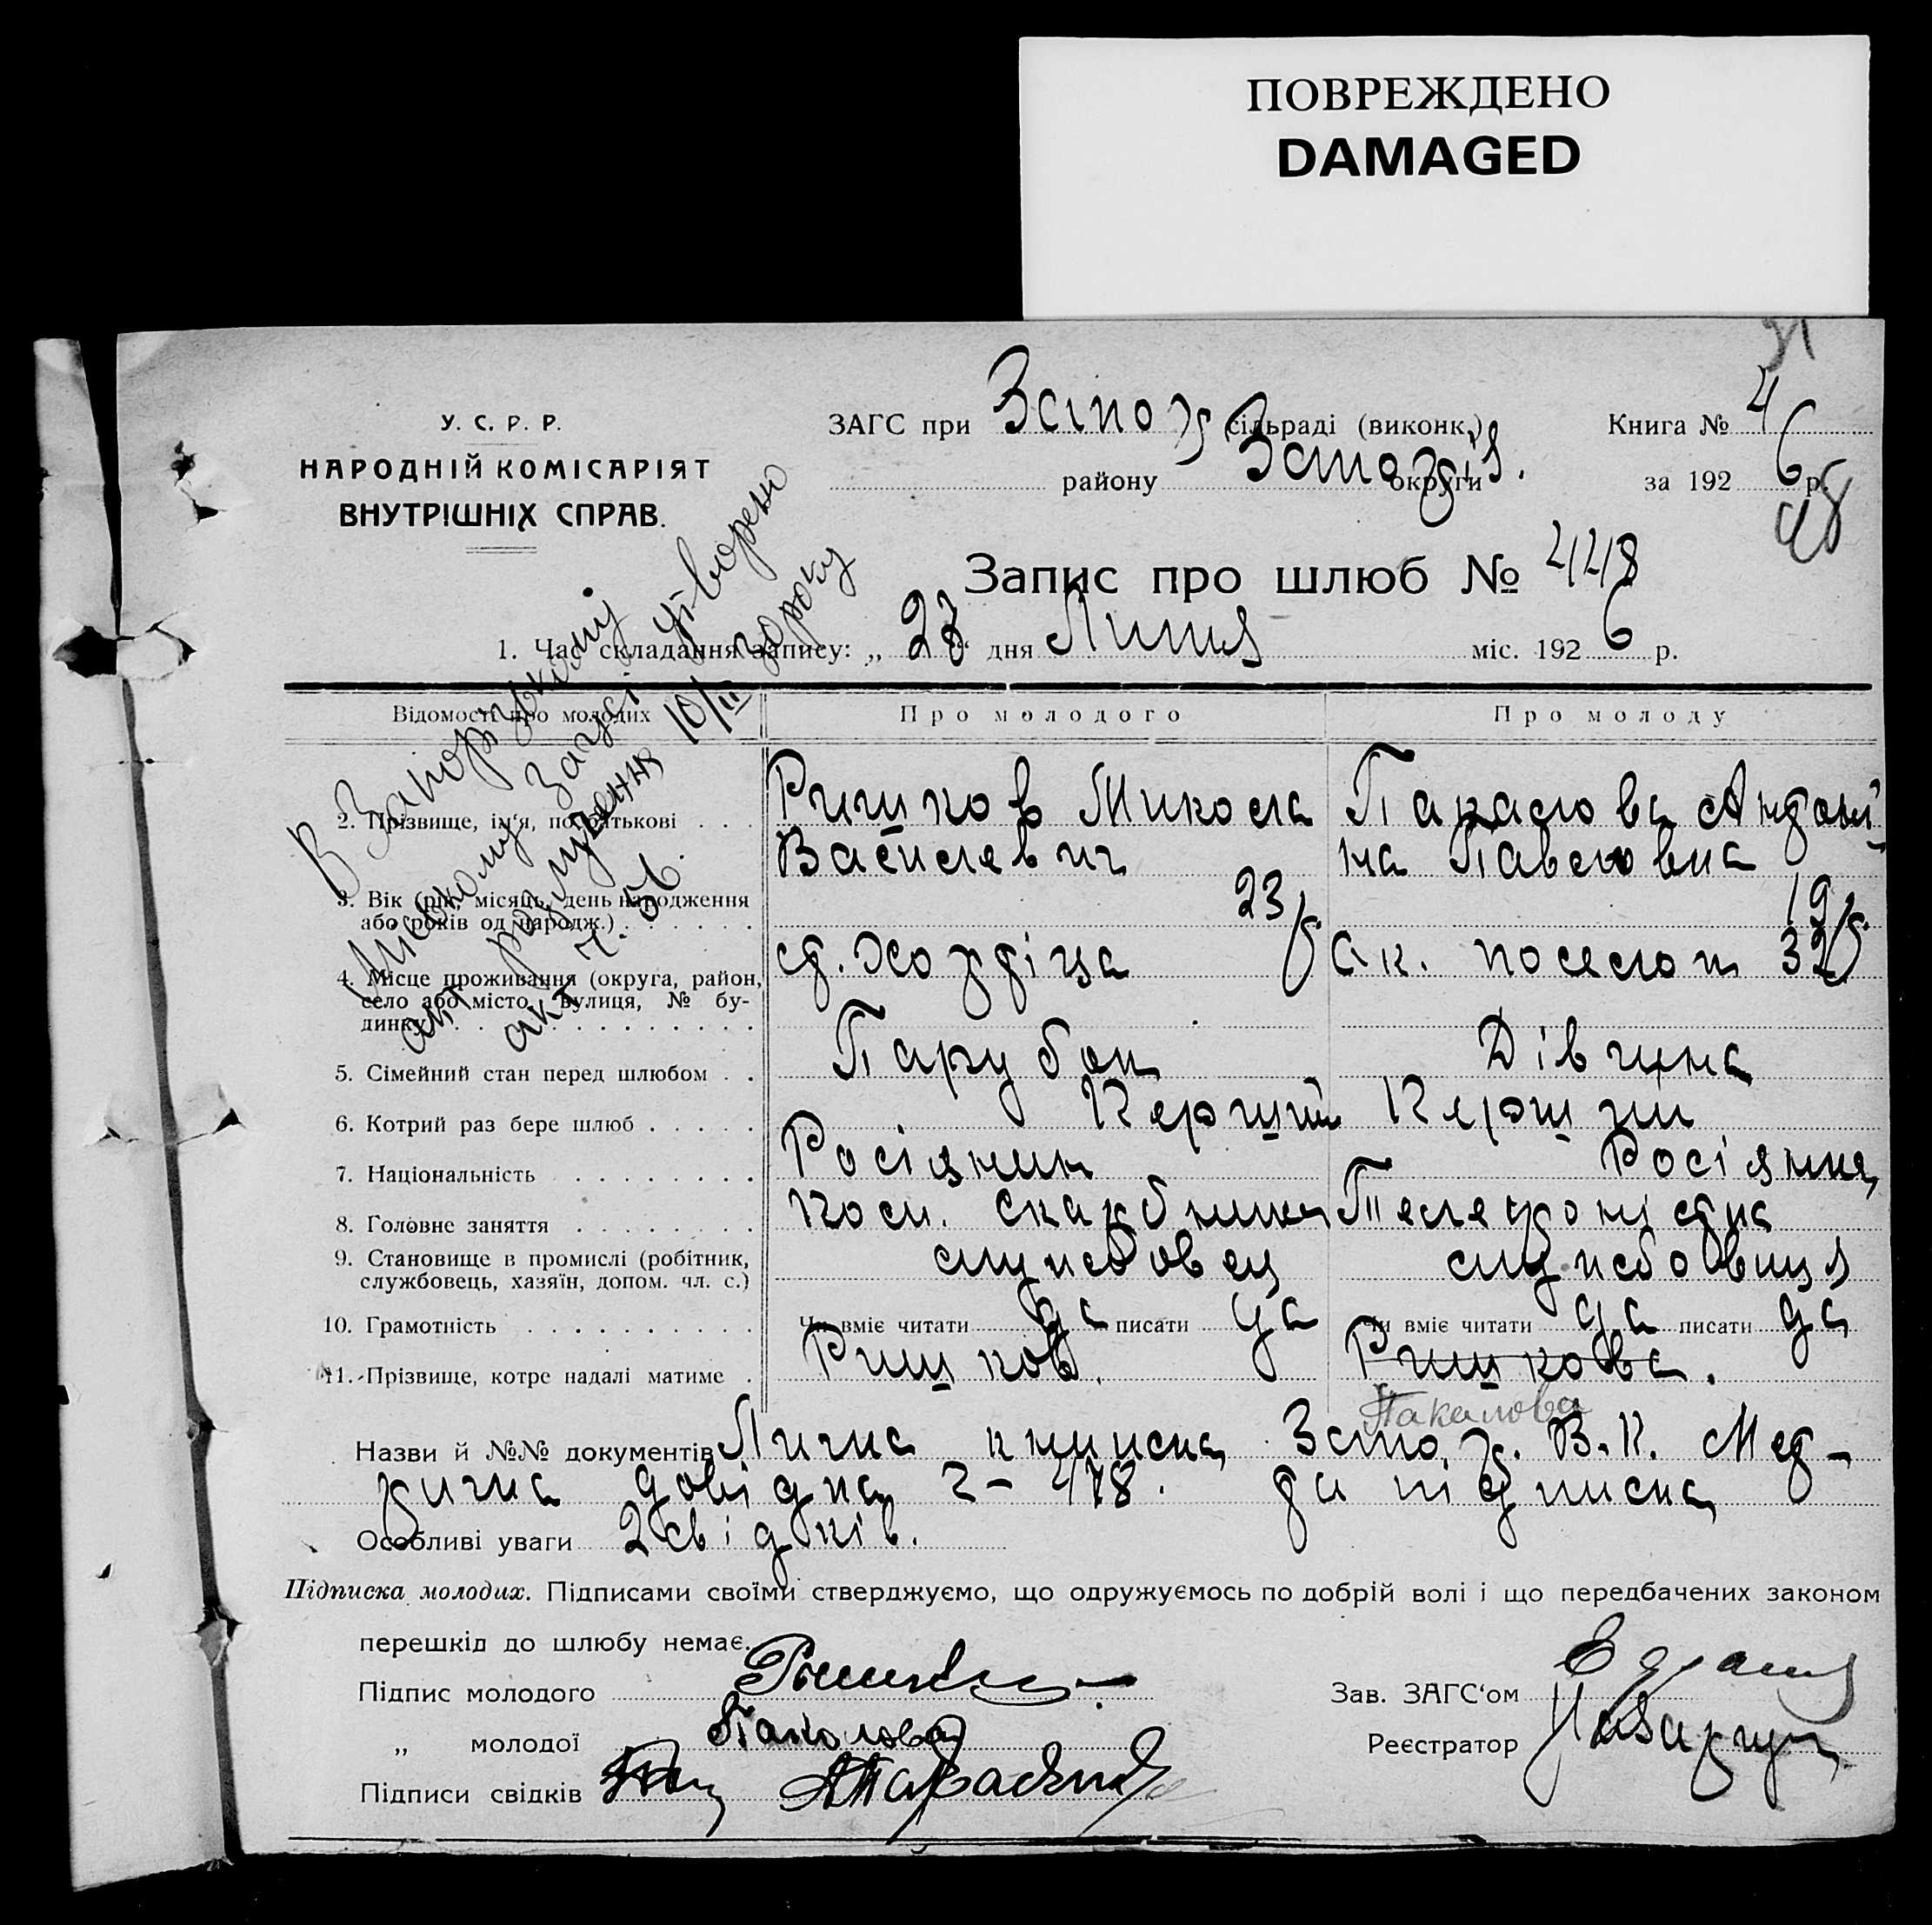 ПОВРЕЖДЕНО
DAMAGED
У. С. Р. Р.
НАРОДНІЙ КОМІСАРІЯТ
ВНУТРІШНІХ СПРАВ.
ЗАГС при сільраді (виконк.)
району округи
Книга № 4
за 1926 р.
48
Запис про шлюб № 448
1. Час складання запису: „23“ дня Липня міс. 1926 р.
В Запорізькому
міському Загсі утворено
акт розлучення 10/II 30 року
акт ч. 56.
Відомості про молодих
Про молодого
Про молоду
2. Прізвище, ім'я, по батькові . . .
Ришков Микола
Василевич
Пакалова Антоні
на Павловна
3. Вік (рік, місяць, день народження
або років од народж.) . . . . . .
23
19
4. Місце проживання (округа, район,
село або місто, вулиця, № бу-
динку) . . . . . . . . . . . . .
ст. Хортіца
ак. поселок 32
5. Сімейний стан перед шлюбом . .
Парубок
Дівчина
6. Котрий раз бере шлюб . . . . .
Перший
Перший
7. Національність . . . . . . . .
Росіянин
Росіянка
8. Головне заняття . . . . . . . .
пом. скарбника
Телефоністка
9. Становище в промислі (робітник,
службовець, хазяїн, допом. чл. с.)
службовец
службовиця
10. Грамотність . . . . . . . . . .
Чи вміє читати да писати да
Чи вміє читати да писати да
11. Прізвище, котре надалі матиме .
Ришков.
Ришкова.
Пакалова
Назви й №№ документів Лична книжка Запор. В.К. Мед-
довідка 2 - 478. та підписка
Особливі уваги 2 свідків.
Підписка молодих. Підписами своїми стверджуємо, що одружуємось по добрій волі і що передбачених законом
перешкід до шлюбу немає.
Підпис молодого
Зав. ЗАГС'ом
„ молодої Пакалова
Реєстратор
Підписи свідків